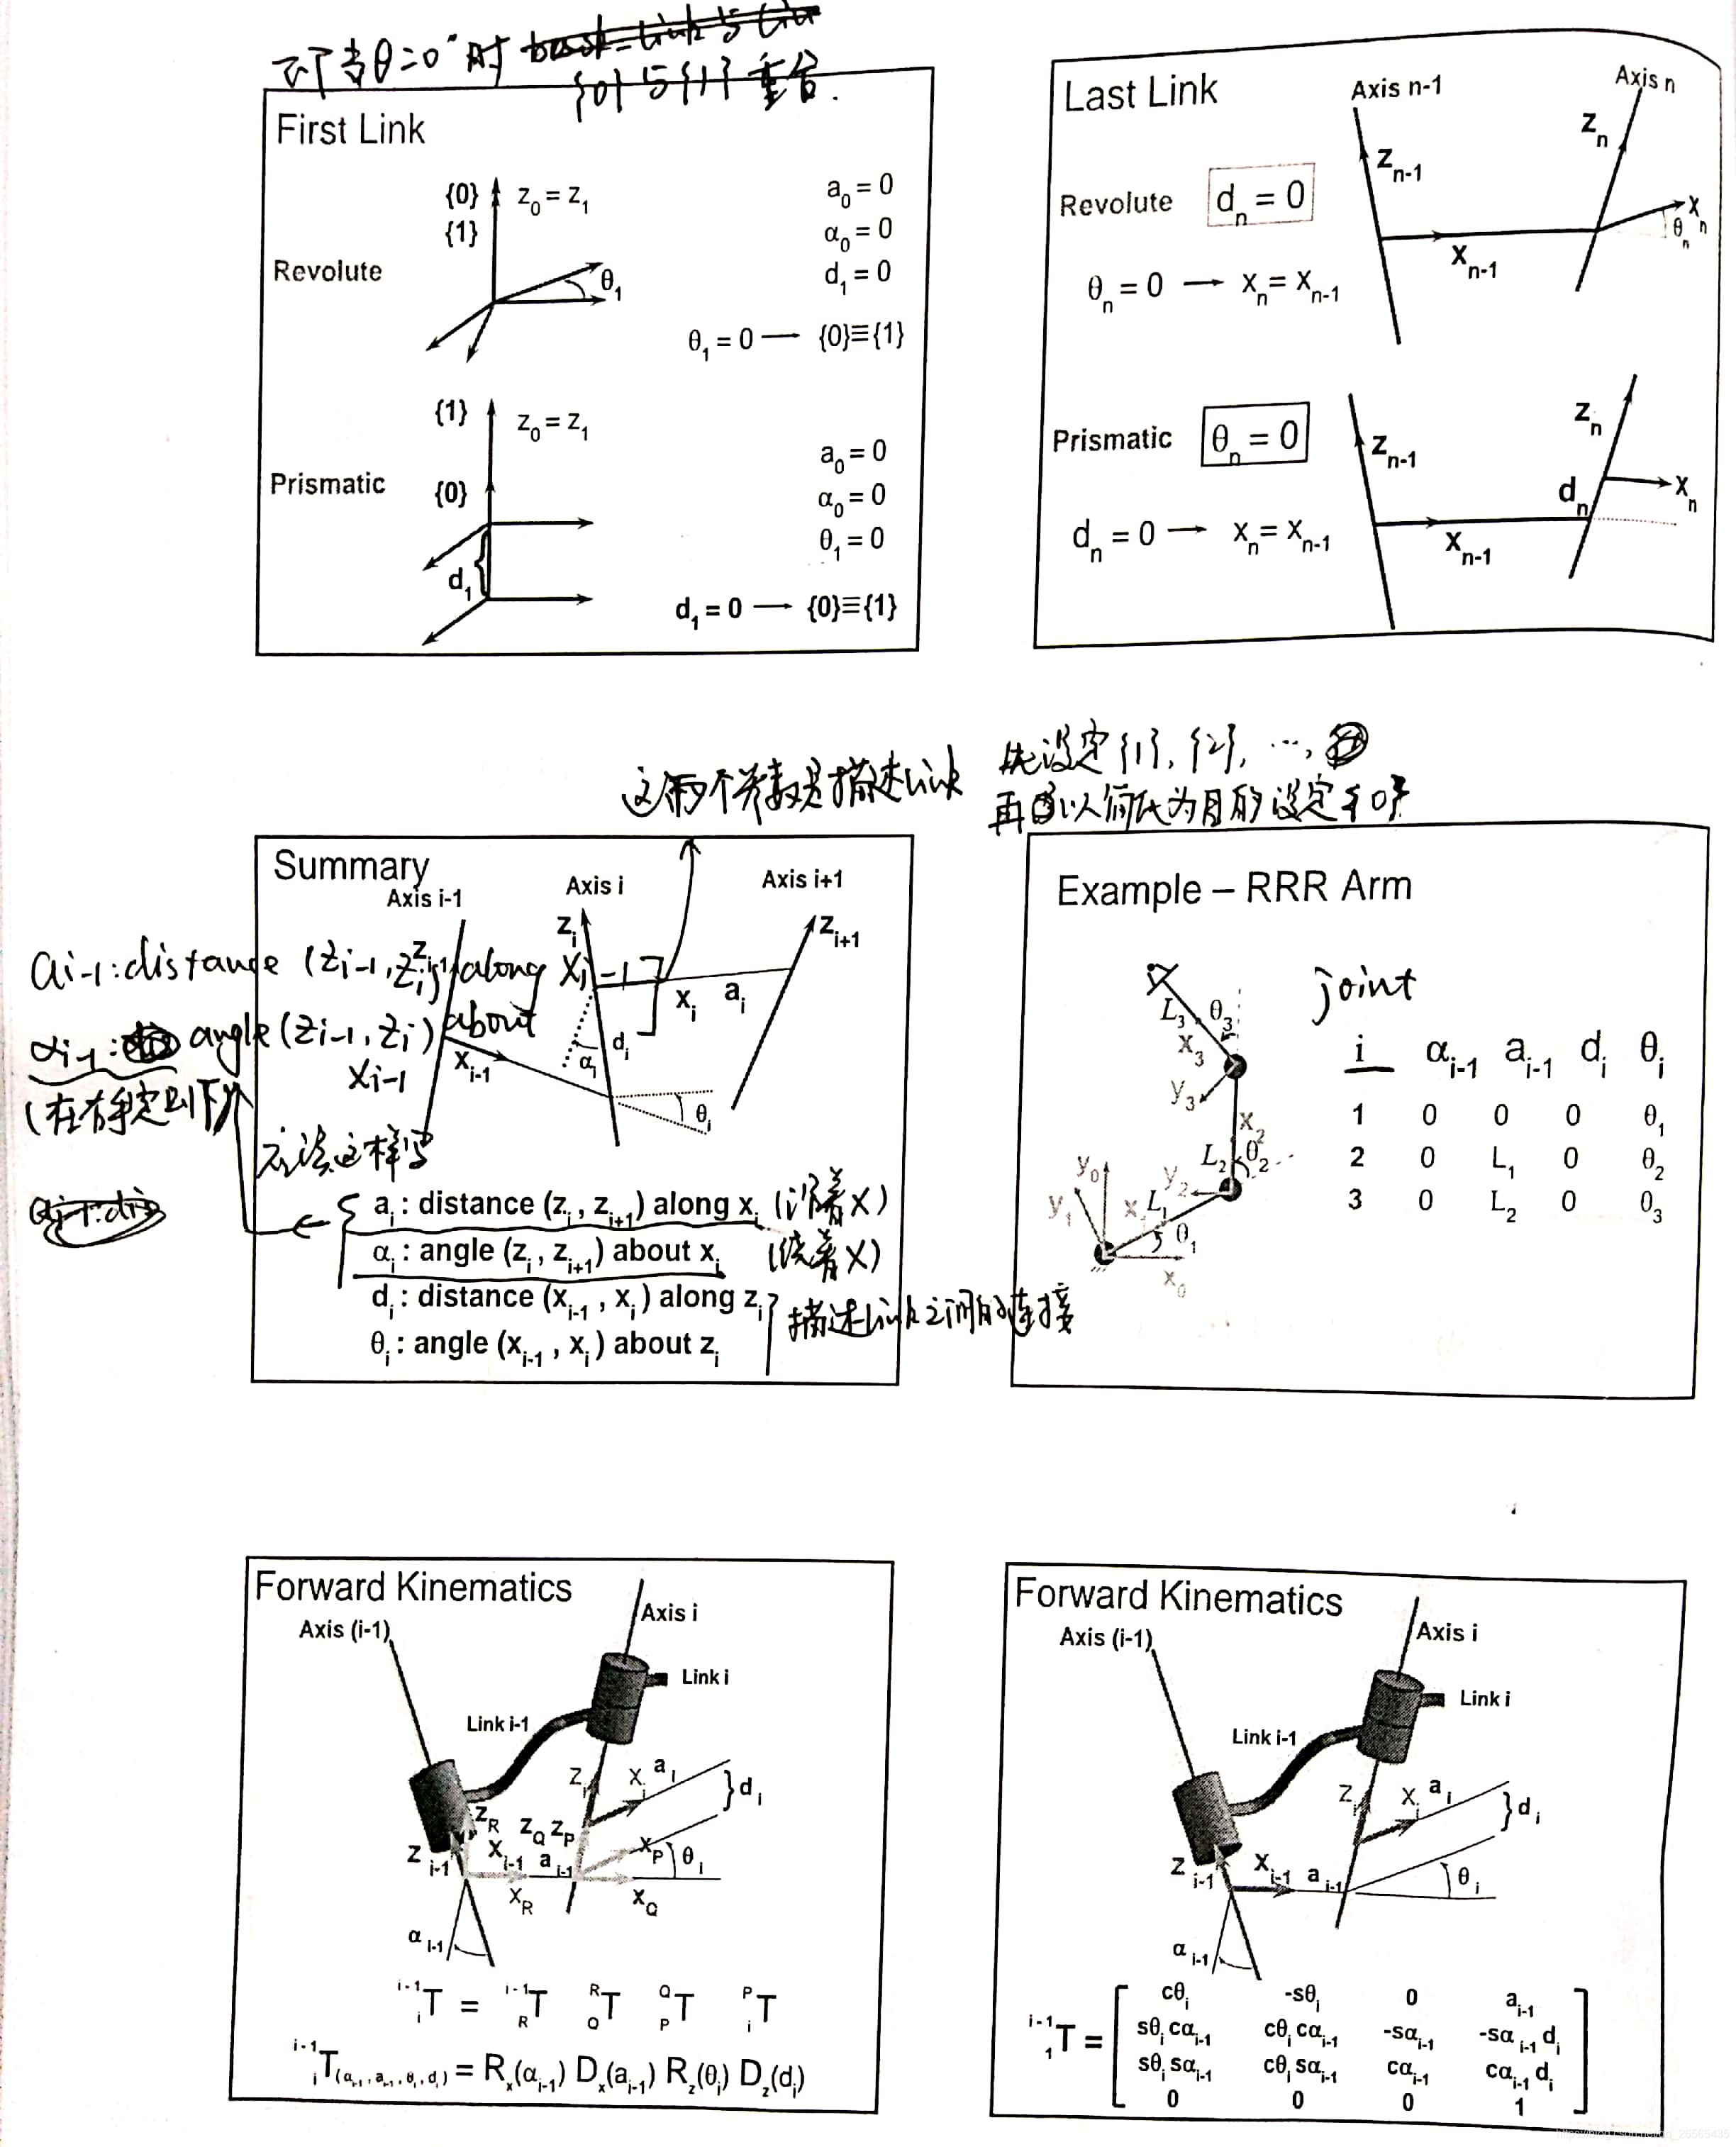 当θ=0°时
{0}与{1}重合.
First Link
{0}
{1}
z0 = z1
Revolute
θ1
a0 = 0
α0 = 0
d1 = 0
θ1 = 0 → {0}≡{1}
{1}
z0 = z1
Prismatic
{0}
d1
a0 = 0
α0 = 0
θ1 = 0
d1 = 0 → {0}≡{1}
Last Link
Axis n-1
Axis n
Zn
Zn-1
Revolute
dn = 0
Xn
θn
Xn-1
θn = 0 → Xn = Xn-1
Zn
Prismatic
θn = 0
Zn-1
dn
Xn
Xn-1
dn = 0 → Xn = Xn-1
这两个参数是描述link
先设定{1}, {2}, …,
再以简化为目的设定{0}
Summary
Axis i-1
Axis i
Axis i+1
Zi
Zi+1
ai-1: distance (Zi-1, Zi) along Xi-1
αi-1: angle (Zi-1, Zi) about
Xi-1
(在右手定则下)
Xi
ai
di
αi
Xi-1
θi
应该这样写
ai : distance (zi , zi+1) along xi (沿着X)
αi : angle (zi , zi+1) about xi (绕着X)
di : distance (xi-1 , xi) along zi
θi : angle (xi-1 , xi) about zi
描述link之间的连接
Example – RRR Arm
joint
L3
θ3
X3
y3
X2
L2
θ2
y2
y0
y1
X1
L1
θ1
X0
i αi-1 ai-1 di θi
1 0 0 0 θ1
2 0 L1 0 θ2
3 0 L2 0 θ3
Forward Kinematics
Axis (i-1)
Axis i
Link i
Link i-1
Zi
Xi
ai
di
ZR
ZQ ZP
Zi-1
Xi-1
ai-1
XP
θi
XR
XQ
αi-1
i-1iT = i-1RT RQT QPT PiT
i-1iT(αi-1, ai-1, θi, di) = Rx(αi-1) Dx(ai-1) Rz(θi) Dz(di)
Forward Kinematics
Axis (i-1)
Axis i
Link i
Link i-1
Zi
Xi
ai
di
Zi-1
Xi-1
ai-1
θi
αi-1
cθi -sθi 0 ai-1
i-11T = sθi cαi-1 cθi cαi-1 -sαi-1 -sαi-1 di
sθi sαi-1 cθi sαi-1 cαi-1 cαi-1 di
0 0 0 1